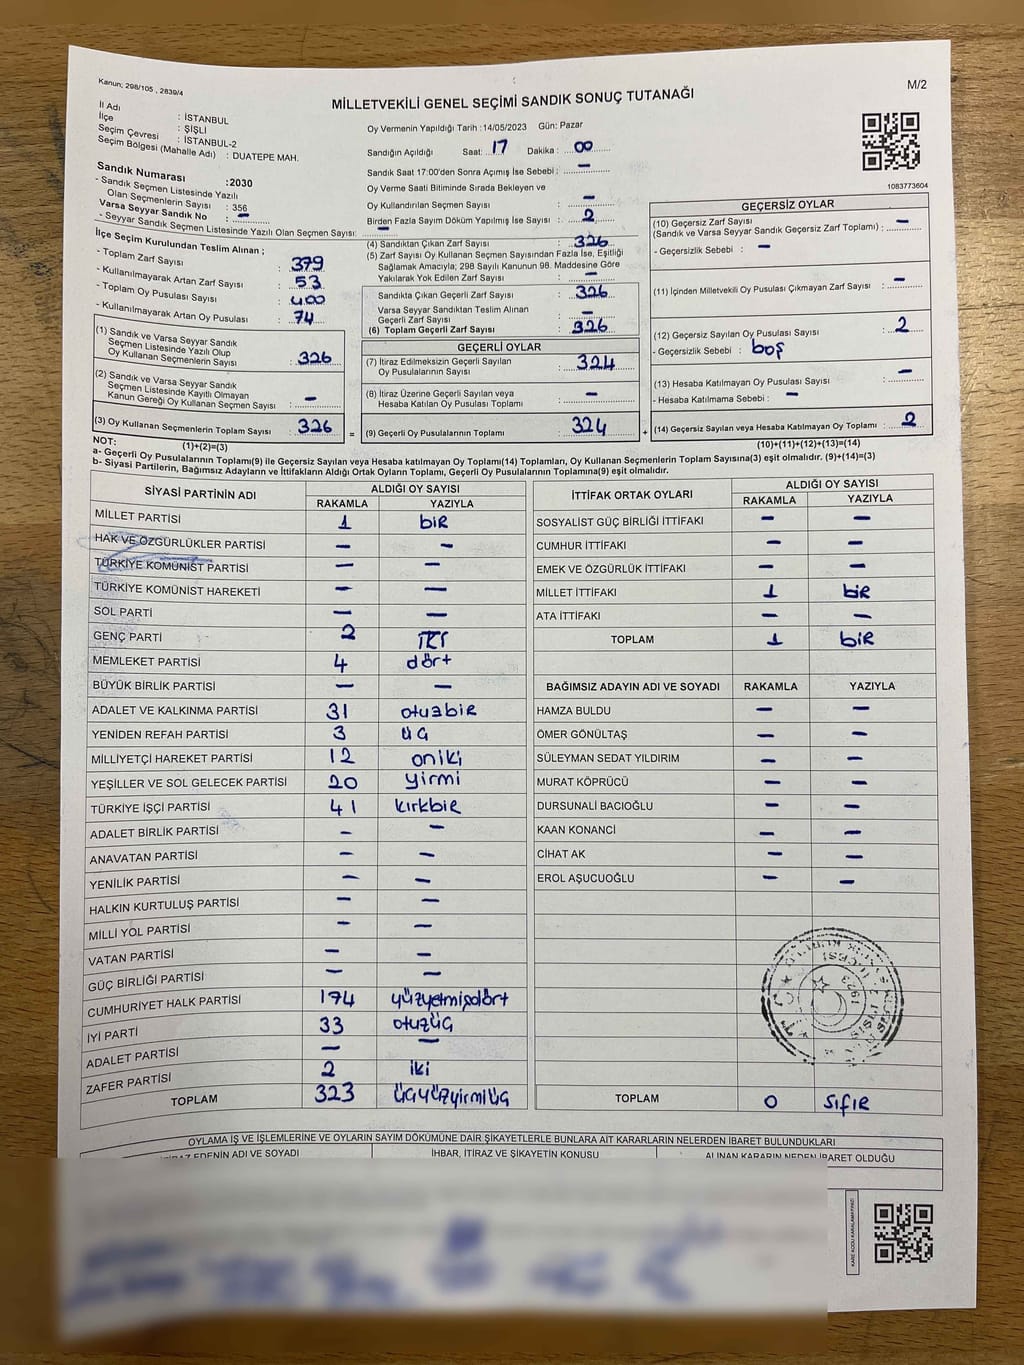 Kanun; 298/105 , 2839/4
M/2
MİLLETVEKİLİ GENEL SEÇİMİ SANDIK SONUÇ TUTANAĞI
İl Adı : İSTANBUL
İlçe : ŞİŞLİ
Seçim Çevresi : İSTANBUL-2
Seçim Bölgesi (Mahalle Adı) : DUATEPE MAH.
Sandık Numarası :2030
- Sandık Seçmen Listesinde Yazılı
Olan Seçmenlerin Sayısı : 356
Varsa Seyyar Sandık No : -
- Seyyar Sandık Seçmen Listesinde Yazılı Olan Seçmen Sayısı: -
Oy Vermenin Yapıldığı Tarih :14/05/2023 Gün: Pazar
Sandığın Açıldığı Saat: 17 Dakika : 00
Sandık Saat 17:00'den Sonra Açımış İse Sebebi : -
Oy Verme Saati Bitiminde Sırada Bekleyen ve
Oy Kullandırılan Seçmen Sayısı : -
Birden Fazla Sayım Döküm Yapılmış İse Sayısı : 2
1083773604
İlçe Seçim Kurulundan Teslim Alınan ;
- Toplam Zarf Sayısı : 379
- Kullanılmayarak Artan Zarf Sayısı : 53
- Toplam Oy Pusulası Sayısı : 400
- Kullanılmayarak Artan Oy Pusulası : 74
(1) Sandık ve Varsa Seyyar Sandık
Seçmen Listesinde Yazılı Olup
Oy Kullanan Seçmenlerin Sayısı : 326
(2) Sandık ve Varsa Seyyar Sandık
Seçmen Listesinde Kayıtlı Olmayan
Kanun Gereği Oy Kullanan Seçmen Sayısı : -
(3) Oy Kullanan Seçmenlerin Toplam Sayısı : 326
(4) Sandıktan Çıkan Zarf Sayısı : 326
(5) Zarf Sayısı Oy Kullanan Seçmen Sayısından Fazla İse, Eşitliği
Sağlamak Amacıyla; 298 Sayılı Kanunun 98. Maddesine Göre
Yakılarak Yok Edilen Zarf Sayısı : -
Sandıkta Çıkan Geçerli Zarf Sayısı : 326
Varsa Seyyar Sandıktan Teslim Alınan
Geçerli Zarf Sayısı : -
(6) Toplam Geçerli Zarf Sayısı : 326
GEÇERLİ OYLAR
(7) İtiraz Edilmeksizin Geçerli Sayılan
Oy Pusulalarının Sayısı : 324
(8) İtiraz Üzerine Geçerli Sayılan veya
Hesaba Katılan Oy Pusulası Toplamı : -
= (9) Geçerli Oy Pusulalarının Toplamı : 324
GEÇERSİZ OYLAR
(10) Geçersiz Zarf Sayısı
(Sandık ve Varsa Seyyar Sandık Geçersiz Zarf Toplamı) : -
- Geçersizlik Sebebi : -
(11) İçinden Milletvekili Oy Pusulası Çıkmayan Zarf Sayısı : -
(12) Geçersiz Sayılan Oy Pusulası Sayısı : 2
- Geçersizlik Sebebi : boş
(13) Hesaba Katılmayan Oy Pusulası Sayısı : -
- Hesaba Katılmama Sebebi : -
+ (14) Geçersiz Sayılan veya Hesaba Katılmayan Oy Toplamı : 2
NOT: (1)+(2)=(3) (10)+(11)+(12)+(13)=(14)
a- Geçerli Oy Pusulalarının Toplamı(9) ile Geçersiz Sayılan veya Hesaba katılmayan Oy Toplamı(14) Toplamları, Oy Kullanan Seçmenlerin Toplam Sayısına(3) eşit olmalıdır. (9)+(14)=(3)
b- Siyasi Partilerin, Bağımsız Adayların ve İttifakların Aldığı Ortak Oyların Toplamı, Geçerli Oy Pusulalarının Toplamına(9) eşit olmalıdır.
SİYASİ PARTİNİN ADI ALDIĞI OY SAYISI
RAKAMLA YAZIYLA
MİLLET PARTİSİ 1 bir
HAK VE ÖZGÜRLÜKLER PARTİSİ - -
TÜRKİYE KOMÜNİST PARTİSİ - -
TÜRKİYE KOMÜNİST HAREKETİ - -
SOL PARTİ - -
GENÇ PARTİ 2
MEMLEKET PARTİSİ 4 dört
BÜYÜK BİRLİK PARTİSİ - -
ADALET VE KALKINMA PARTİSİ 31 otuzbir
YENİDEN REFAH PARTİSİ 3 üç
MİLLİYETÇİ HAREKET PARTİSİ 12 oniki
YEŞİLLER VE SOL GELECEK PARTİSİ 20 yirmi
TÜRKİYE İŞÇİ PARTİSİ 41 kırkbir
ADALET BİRLİK PARTİSİ - -
ANAVATAN PARTİSİ - -
YENİLİK PARTİSİ - -
HALKIN KURTULUŞ PARTİSİ - -
MİLLİ YOL PARTİSİ - -
VATAN PARTİSİ - -
GÜÇ BİRLİĞİ PARTİSİ - -
CUMHURİYET HALK PARTİSİ 174 yüzyetmişdört
İYİ PARTİ 33 otuzüç
ADALET PARTİSİ - -
ZAFER PARTİSİ 2 iki
TOPLAM 323 üçyüzyirmiüç
İTTİFAK ORTAK OYLARI ALDIĞI OY SAYISI
RAKAMLA YAZIYLA
SOSYALİST GÜÇ BİRLİĞİ İTTİFAKI - -
CUMHUR İTTİFAKI - -
EMEK VE ÖZGÜRLÜK İTTİFAKI - -
MİLLET İTTİFAKI 1 bir
ATA İTTİFAKI - -
TOPLAM 1 bir
BAĞIMSIZ ADAYIN ADI VE SOYADI RAKAMLA YAZIYLA
HAMZA BULDU - -
ÖMER GÖNÜLTAŞ - -
SÜLEYMAN SEDAT YILDIRIM - -
MURAT KÖPRÜCÜ - -
DURSUNALİ BACIOĞLU - -
KAAN KONANCİ - -
CİHAT AK - -
EROL AŞUCUOĞLU - -
TOPLAM 0 sıfır
T.C.
1923
OYLAMA İŞ VE İŞLEMLERİNE VE OYLARIN SAYIM DÖKÜMÜNE DAİR ŞİKAYETLERLE BUNLARA AİT KARARLARIN NELERDEN İBARET BULUNDUKLARI
EDENİN ADI VE SOYADI İHBAR, İTİRAZ VE ŞİKAYETİN KONUSU ALINAN KARARIN NEDEN İBARET OLDUĞU